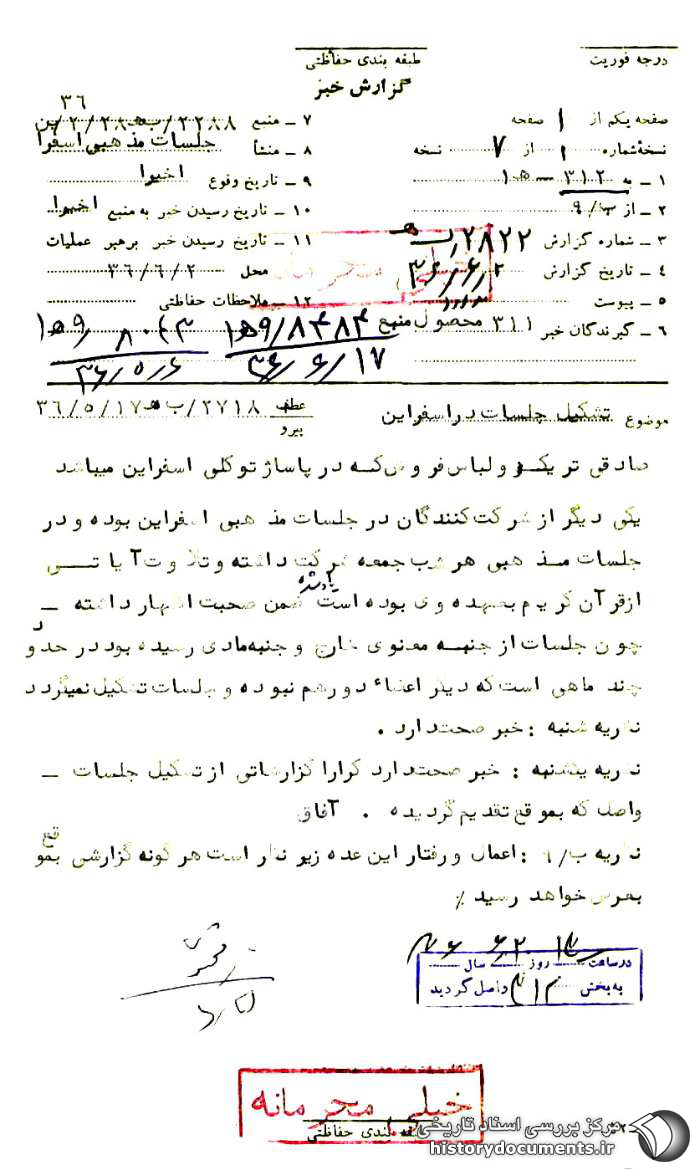 درجه فوریت
طبقه بندی حفاظتی
گزارش خبر
صفحه یکم از ۱ صفحه
نسخهٔ شماره ۱ از ۷ نسخه
۱ ـ به ۳۱۲
۲ ـ از ۹/ب
۳ ـ شماره گزارش ۲۸۲۲
۴ ـ تاریخ گزارش ۳۶/۶/۲
۵ ـ پیوست
۶ ـ گیرندگان خبر ۳۱۱ محصول منبع
۳۶
۷ ـ منبع ۲۲۸۸
۸ ـ منشأ جلسات مذهبی اسفرا
۹ ـ تاریخ وقوع اخیرا
۱۰ ـ تاریخ رسیدن خبر به منبع اخیرا
۱۱ ـ تاریخ رسیدن خبر برهبر عملیات
محل ۳۶/۶/۲
۱۲ ـ ملاحظات حفاظتی
۱ه۹/۸۴۸۴
۳۶/۶/۱۷
۳۶/۵/۶
موضوع تشکیل جلسات در اسفراین
عطف پیرو ۲۷۱۸/ب‌ه ۳۶/۵/۱۷
صادقی تریکو و لباس فروش که در پاساژ توکلی اسفراین میباشد
یکی دیگر از شرکت کنندگان در جلسات مذهبی اسفراین بوده و در
جلسات مذهبی هر شب جمعه شرکت داشته و تلاوت آیاتی
از قرآن کریم بعهده وی بوده است یادشده ضمن صحبت اظهار داشته ـ
چون جلسات از جنبه معنوی خارج و جنبه مادی رسیده بود در حدود
چند ماهی است که دیگر اعضاء دورهم نبوده و جلسات تشکیل نمیگردد
نظریه شنبه : خبر صحت دارد .
نظریه یکشنبه : خبر صحت دارد کرارا گزارشاتی از تشکیل جلسات ـ
واصل که بموقع تقدیم گردیده . آفاق
نظریه ب/۹ : اعمال و رفتار این عده زیر نظر است هر گونه گزارشی بموقع
بعرض خواهد رسید ٪
در ساعت روز سال
به بخش ۳۱۲ واصل گردید
خیلی محرمانه
طبقه بندی حفاظتی
مرکز بررسی اسناد تاریخی
historydocuments.ir